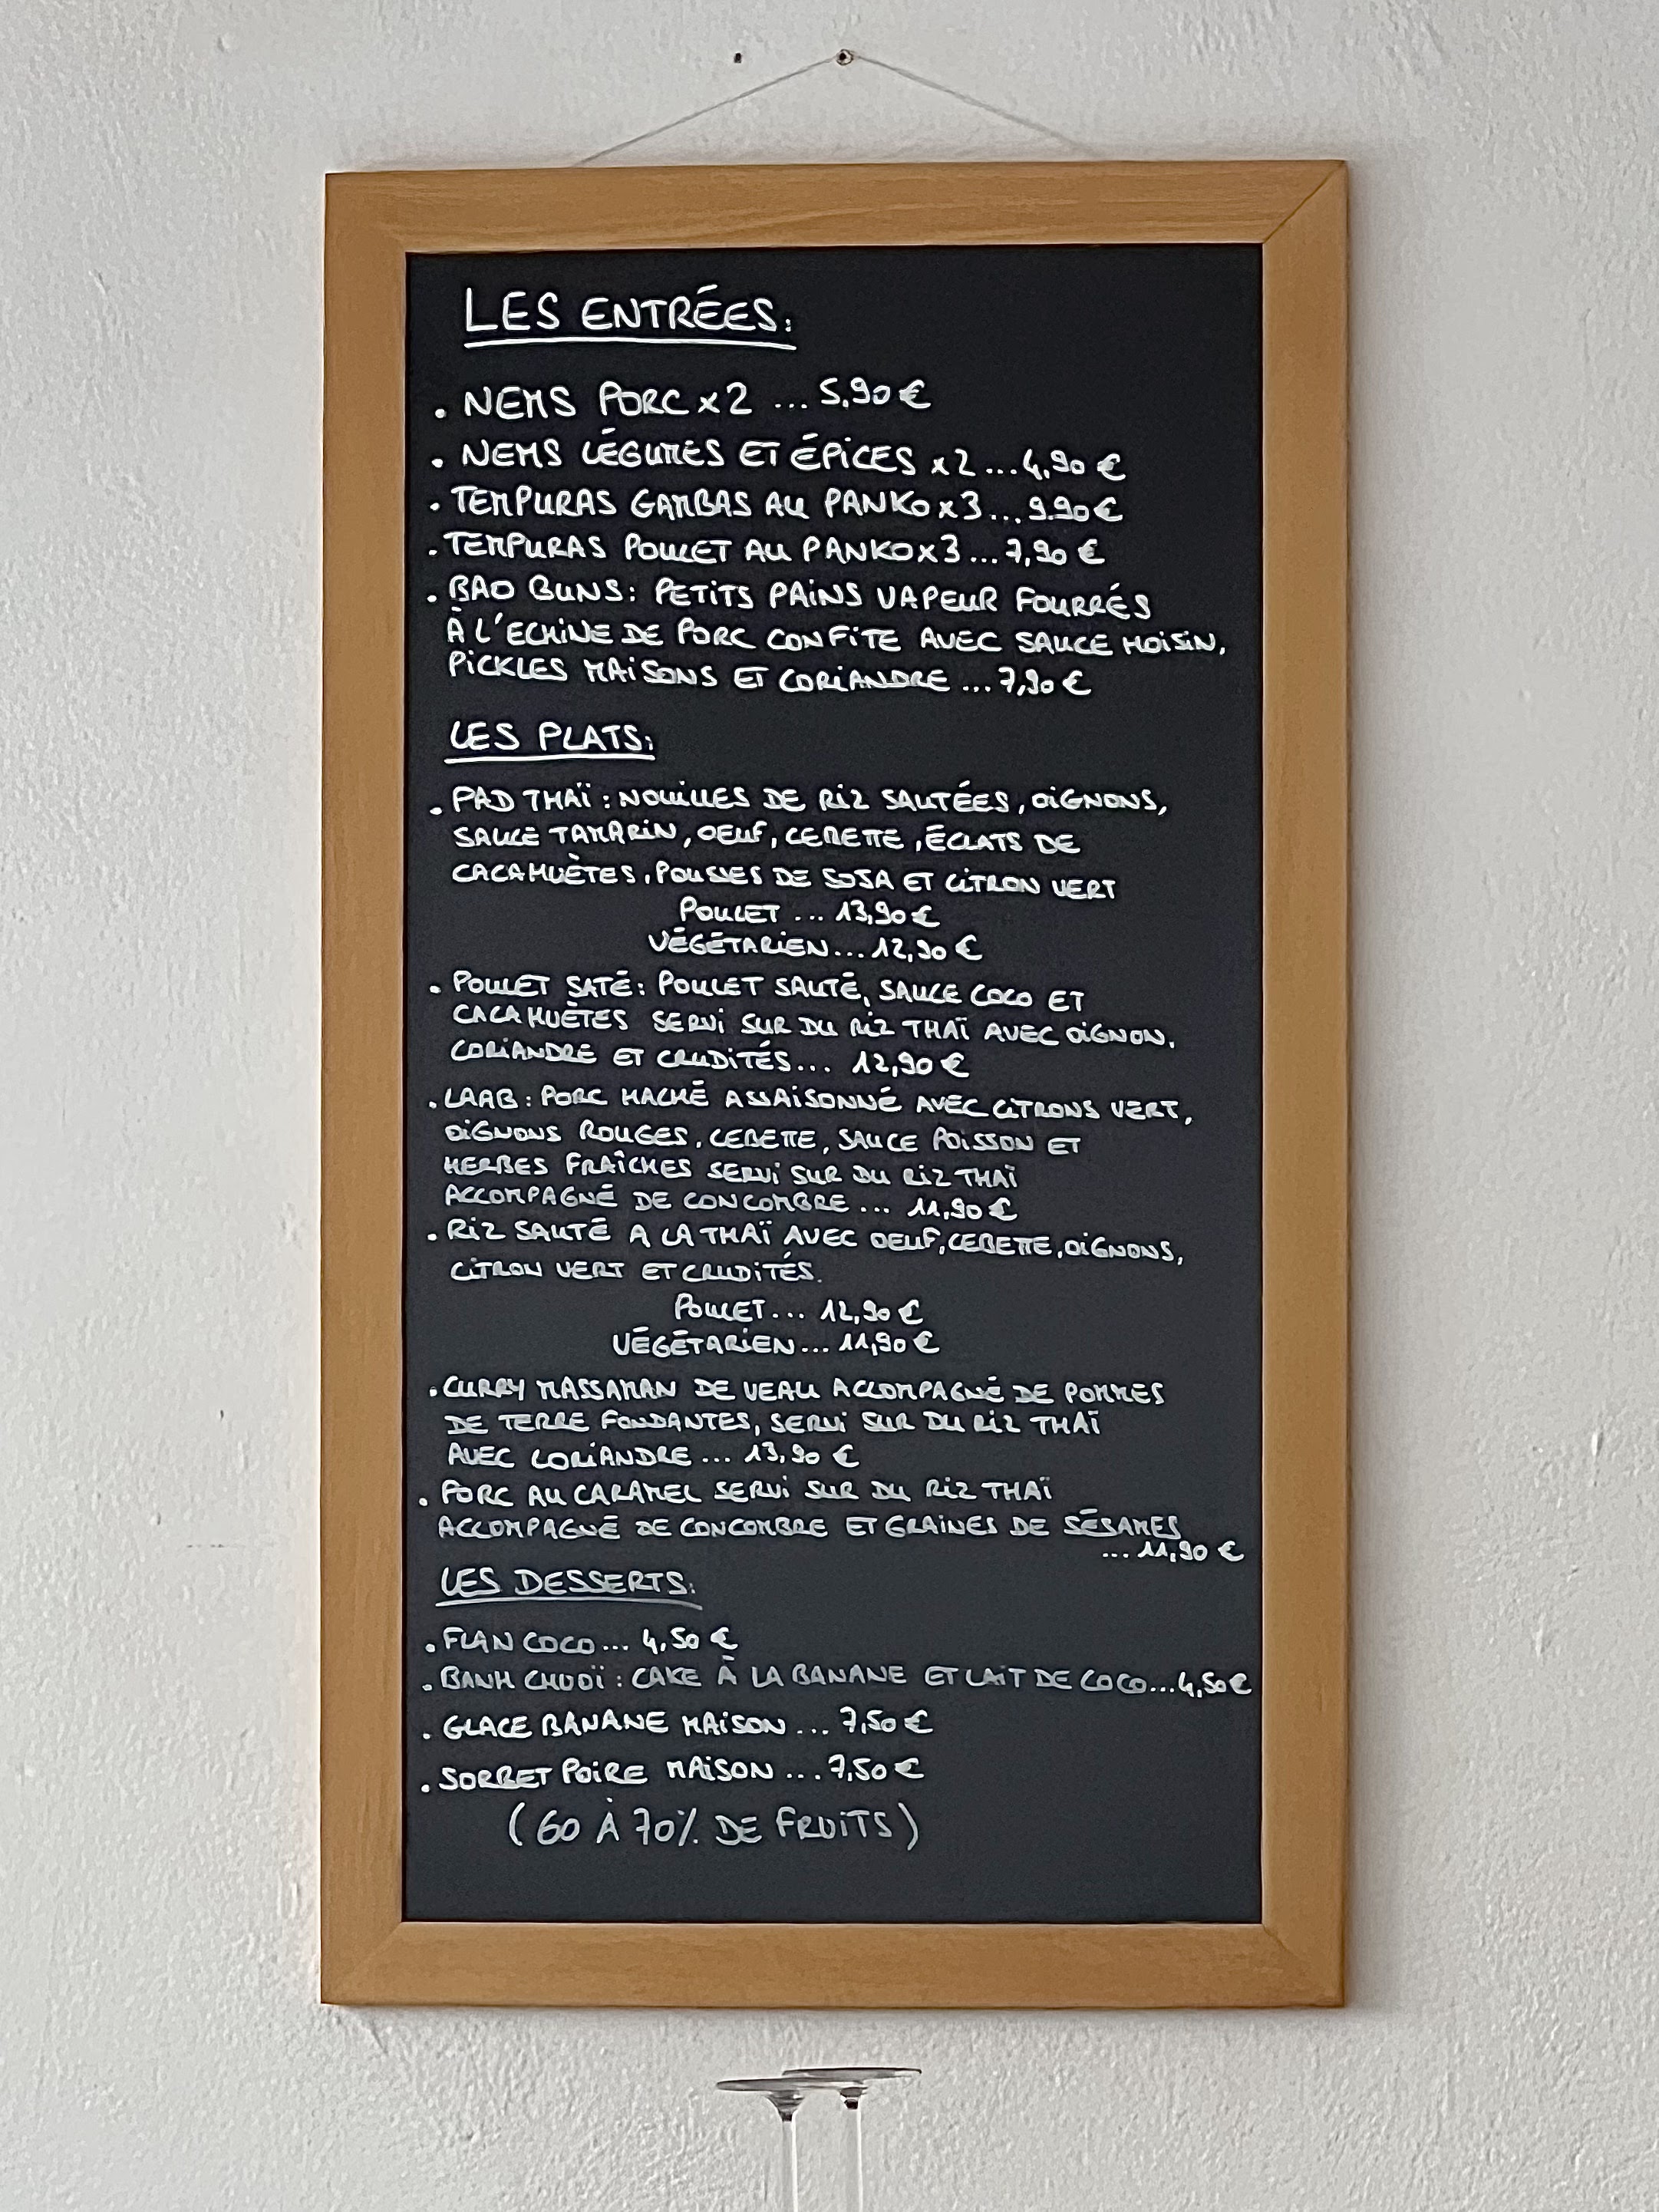 LES ENTRÉES:
. NEMS PORC x 2 ... 5,90 €
. NEMS LÉGUMES ET ÉPICES x 2 ... 4,90 €
. TEMPURAS GAMBAS AU PANKO x 3 ... 9.90 €
. TEMPURAS POULET AU PANKO x 3 ... 7,90 €
. BAO BUNS : PETITS PAINS VAPEUR FOURRÉS
À L'ECHINE DE PORC CONFITE AVEC SAUCE HOISIN,
PICKLES MAISONS ET CORIANDRE ... 7,90 €
LES PLATS:
. PAD THAÏ : NOUILLES DE RIZ SAUTÉES, OIGNONS,
SAUCE TAMARIN, OEUF, CEBETTE, ÉCLATS DE
CACAHUÈTES, POUSSES DE SOJA ET CITRON VERT
POULET ... 13,90 €
VÉGÉTARIEN ... 12,90 €
. POULET SATÉ : POULET SAUTÉ, SAUCE COCO ET
CACAHUÈTES SERVI SUR DU RIZ THAÏ AVEC OIGNON,
CORIANDRE ET CRUDITÉS ... 12,90 €
. LAAB : PORC HACHÉ ASSAISONNÉ AVEC CITRONS VERT,
OIGNONS ROUGES, CEBETTE, SAUCE POISSON ET
HERBES FRAÎCHES SERVI SUR DU RIZ THAÏ
ACCOMPAGNÉ DE CONCOMBRE ... 11,90 €
. RIZ SAUTÉ A LA THAÏ AVEC OEUF, CEBETTE, OIGNONS,
CITRON VERT ET CRUDITÉS.
POULET ... 12,90 €
VÉGÉTARIEN ... 11,90 €
. CURRY MASSAMAN DE VEAU ACCOMPAGNÉ DE POMMES
DE TERRE FONDANTES, SERVI SUR DU RIZ THAÏ
AVEC CORIANDRE ... 13,90 €
. PORC AU CARAMEL SERVI SUR DU RIZ THAÏ
ACCOMPAGNÉ DE CONCOMBRE ET GRAINES DE SÉSAMES
... 11,90 €
LES DESSERTS:
. FLAN COCO ... 4,50 €
. BANH CHUOÏ : CAKE À LA BANANE ET LAIT DE COCO ... 4,50 €
. GLACE BANANE MAISON ... 7,50 €
. SORBET POIRE MAISON ... 7,50 €
(60 À 70% DE FRUITS)